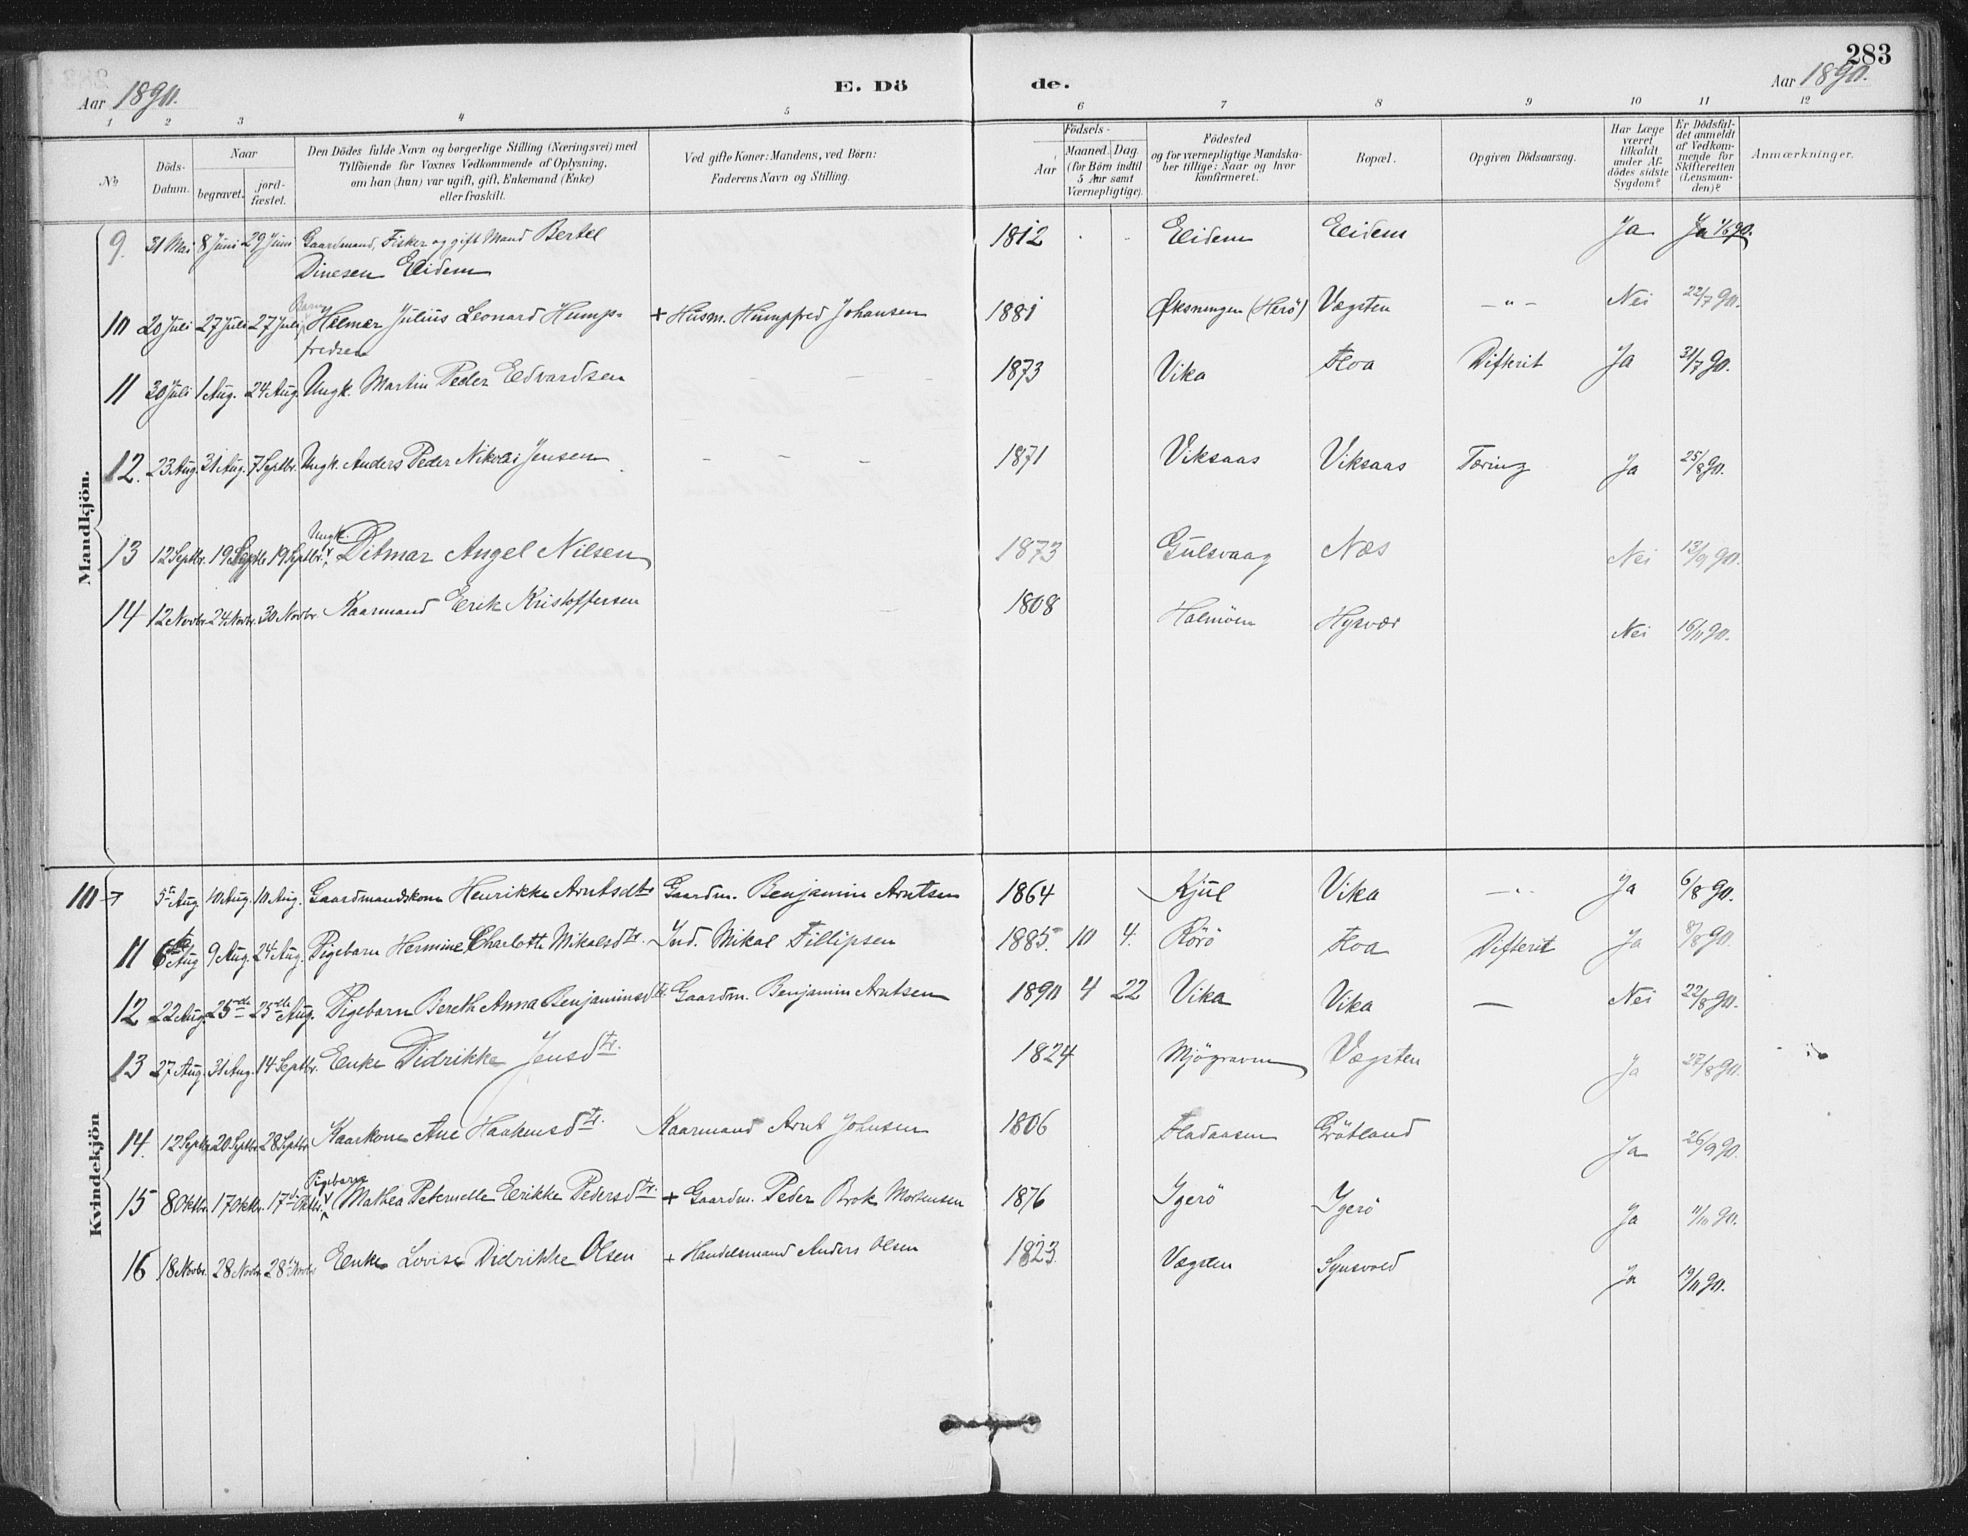 283
Aar 1890.
E. Dö
de.
Aar 1890.
1 2 3 4 5 6 7 8 9 10 11 12
№ Döds-Datum. Naar begravet. jordfæstet. Den Dödes fulde Navn og borgerlige Stilling (Næringsvei) med Tilföiende for Voxnes Vedkommende af Oplysning, om han (hun) var ugift, gift, Enkemand (Enke) eller fraskilt. Ved gifte Koner: Mandens, ved Börn: Faderens Navn og Stilling. Födsels- Aar Maaned. Dag. (for Börn indtil 5 Aar samt Værnepligtige). Födested og for værnepligtige Mandskaber tillige: Naar og hvor konfirmeret. Bopæl. Opgiven Dödsaarsag. Har Læge været tilkaldt under Afdödes sidste Sygdom? Er Dödsfaldet anmeldt af Vedkommende for Skifteretten (Lensmanden)? Anmærkninger.
Mandkjön.
9. 31 Mai 8 Juni 29 Juni Gaardmand, Fisker og gift Mand Bertel 1812 Eidem Eidem Ja Ja 1/6 90.
Dinesen Eidem
Barn
10 20 Juli 27 Juli 27 Juli Halmar Julius Leonard Hump- + Husm. Humpfred Johansen 1881 Øksningen (Herö) Vægsten -"- Nei 22/7 90.
fredsen
11 30 Juli 1 Aug. 24 Aug. Ungk. Martin Peder Edvardsen – – – 1873 Vika Hoa Difterit Ja 31/7 90.
12. 23 Aug. 31 Aug. 7 Septbr. Ungk. Anders Peder Nikolai Jensen – – – 1871 Viksaas Viksaas Tæring Ja 25/8 90.
Ungk.
13 12 Septbr. 19 Septbr 19 Septbr. Ditmar Angel Nilsen 1873 Gulsvaag Næs Nei 13/9 90.
14 12 Novbr 24 Novbr. 30 Novbr Kaarmand Erik Kristoffersen 1808 Holmöen Hysvær Nei 16/11 90.
Kvindekjön
10 5te Aug. 10 Aug. 10 Aug. Gaardmandskone Henrikke Arntsdtr Gaardm. Benjamin Arntsen 1864 Kjul Vika -"- Ja 6/8 90.
11 6te Aug 9 Aug. 24 Aug. Pigebarn Hermine Charlotte Mikalsdtr. Ind. Mikal Fillipsen 1885. 10 4. Rörö Hoa Difterit Ja 8/8 90.
12 22 Aug. 25de 25de Aug. Pigebarn Bereth Anna Benjaminsdtr. Gaardm. Benjamin Arntsen 1890 4 22 Vika Vika — Nei 22/8 90.
13 27 Aug. 31 Aug. 14 Septbr. Enke Didrikke Jensdtr. 1824 Mjögraven Vægsten Ja 27/8 90.
14. 12 Septbr 20 Septbr 28 Septbr Kaarkone Ane Haakensdtr. Kaarmand Arnt Johnsen 1806 Fladaasen Grötland Ja 26/9 90.
Pigebarn
15 8 Oktbr. 17 Oktbr. 17de Oktbr. Mathea Peternelle Erikke Pedersdtr. + Gaardm. Peder Brok Mortensen 1876 Igerö Igerö Ja 11/10 90.
16 18 Novbr. 28 Novbr 28 Novbr Enke Lovise Didrikke Olsen + Handelsmand Anders Olsen 1823. Vægsten Synsvold Ja 19/11 90.